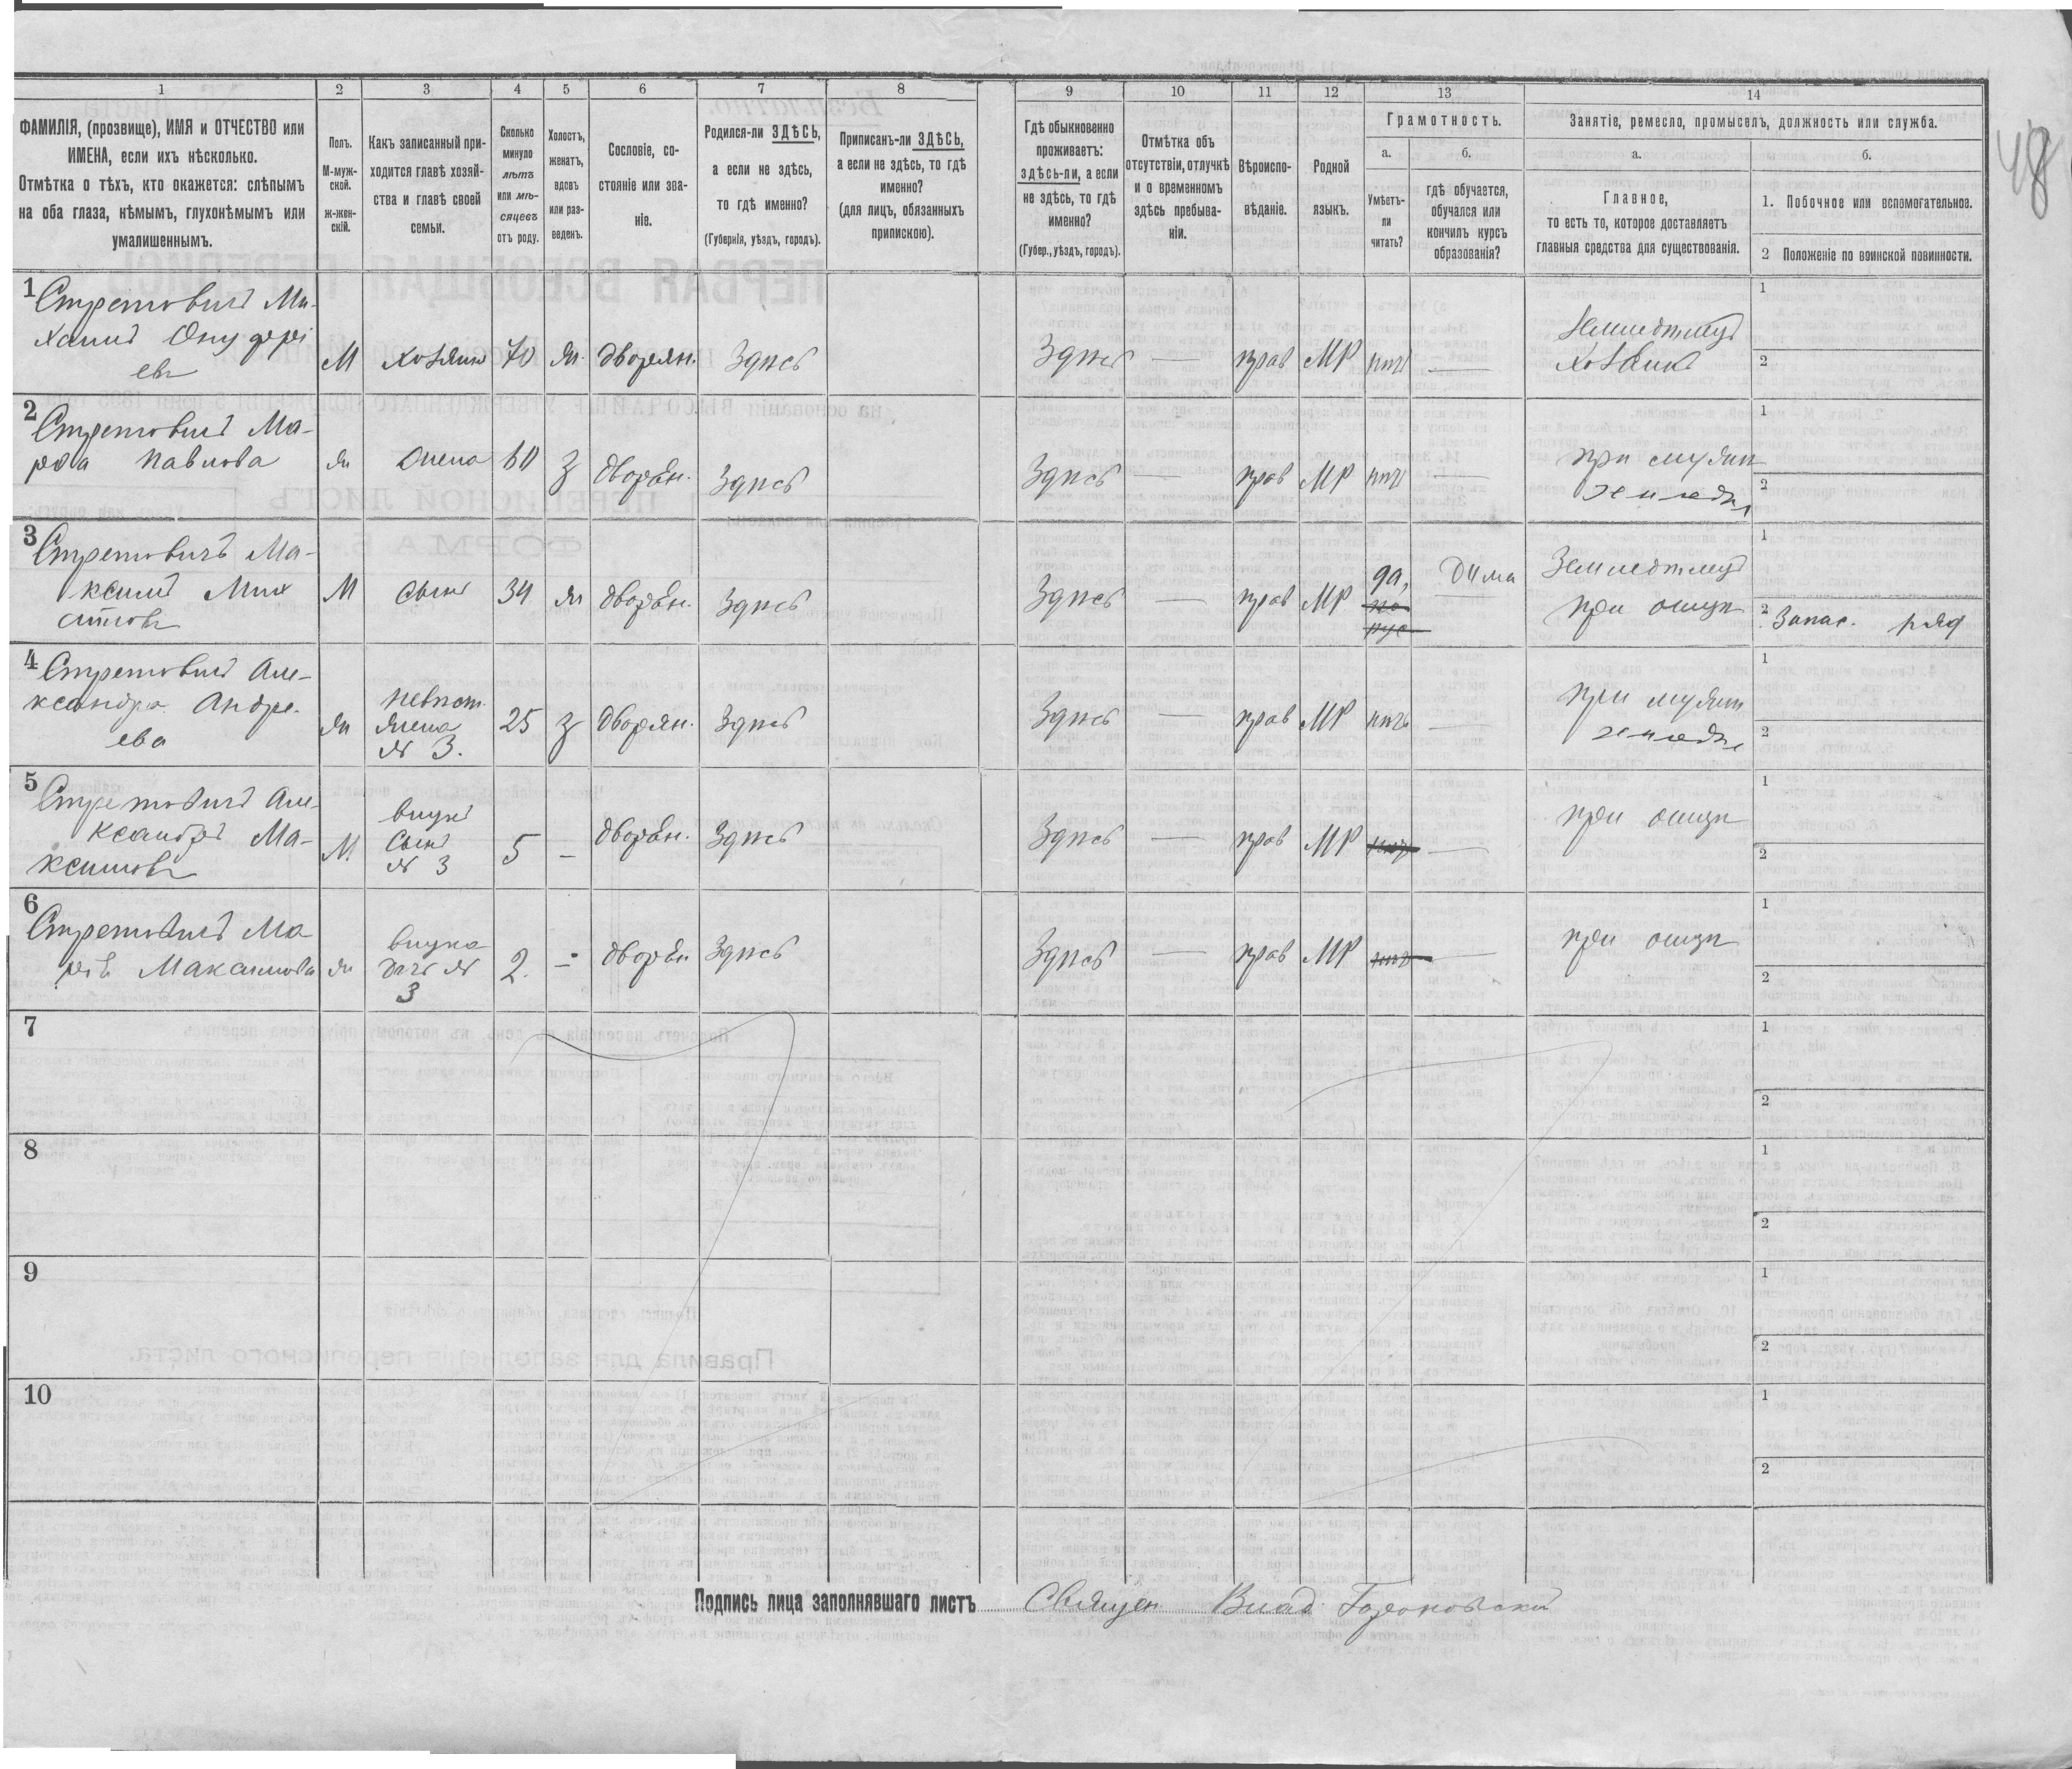 1 2 3 4 5 6 7 8 9 10 11 12 13 14
ФАМИЛІЯ, (прозвище), ИМЯ и ОТЧЕСТВО или
ИМЕНА, если ихъ нѣсколько.
Отмѣтка о тѣхъ, кто окажется: слѣпымъ
на оба глаза, нѣмымъ, глухонѣмымъ или
умалишеннымъ.
Полъ.
М-муж-
ской.
ж-жен-
скій.
Какъ записанный при-
ходится главѣ хозяй-
ства и главѣ своей
семьи.
Сколько
минуло
лѣтъ
или мѣ-
сяцевъ
отъ роду.
Холостъ,
женатъ,
вдовъ
или раз-
веденъ.
Сословіе, со-
стояніе или зва-
ніе.
Родился-ли ЗДѢСЬ,
а если не здѣсь,
то гдѣ именно?
(Губернія, уѣздъ, городъ).
Приписанъ-ли ЗДѢСЬ,
а если не здѣсь, то гдѣ
именно?
(для лицъ, обязанныхъ
припискою).
Гдѣ обыкновенно
проживаетъ:
здѣсь-ли, а если
не здѣсь, то гдѣ
именно?
(Губер., уѣздъ, городъ).
Отмѣтка объ
отсутствіи, отлучкѣ
и о временномъ
здѣсь пребыва-
ніи.
Вѣроиспо-
вѣданіе.
Родной
языкъ.
Грамотность.
а.
Умѣетъ-
ли
читать?
б.
гдѣ обучается,
обучался или
кончилъ курсъ
образованія?
Занятіе, ремесло, промыселъ, должность или служба.
а.
Главное,
то есть то, которое доставляетъ
главныя средства для существованія.
б.
1. Побочное или вспомогательное.
2 Положеніе по воинской повинности.
48
1 Стретовичъ Ми-
хаилъ Онуфрі
евъ
М хозяинъ 70 ж. дворян. Здѣсь
Здѣсь — прав МР нѣтъ —
Хозяинъ
1
2
2 Стретовичъ Ма-
Павлова
ж жена 60 з дворян. Здѣсь
Здѣсь — прав МР нѣтъ —
при мужѣ
1
2
3 Стретовичъ Ма-
ксимъ Миха
иловъ
М сынъ 34 ж дворян. Здѣсь
Здѣсь — прав МР да, дома
при отцѣ
1
2 Запас. ряд
4 Стретовичъ Але-
ксандра Андре-
ева
ж невѣст.
жена
№ 3.
25 з дворян. Здѣсь
Здѣсь — прав МР нѣтъ —
при мужѣ
1
2
5 Стретовичъ Але-
ксандръ Ма-
ксимовъ
М. внукъ
сынъ
№ 3
5 — дворян. Здѣсь
Здѣсь — прав МР —
при отцѣ
1
2
6 Стретовичъ Ма
рія Максимова
ж внучка
дочь №
3
2. — дворян Здѣсь
Здѣсь — прав МР —
при отцѣ
1
2
7
1
2
8
1
2
9
1
2
10
1
2
Подпись лица заполнявшаго листъ Священ Влад.